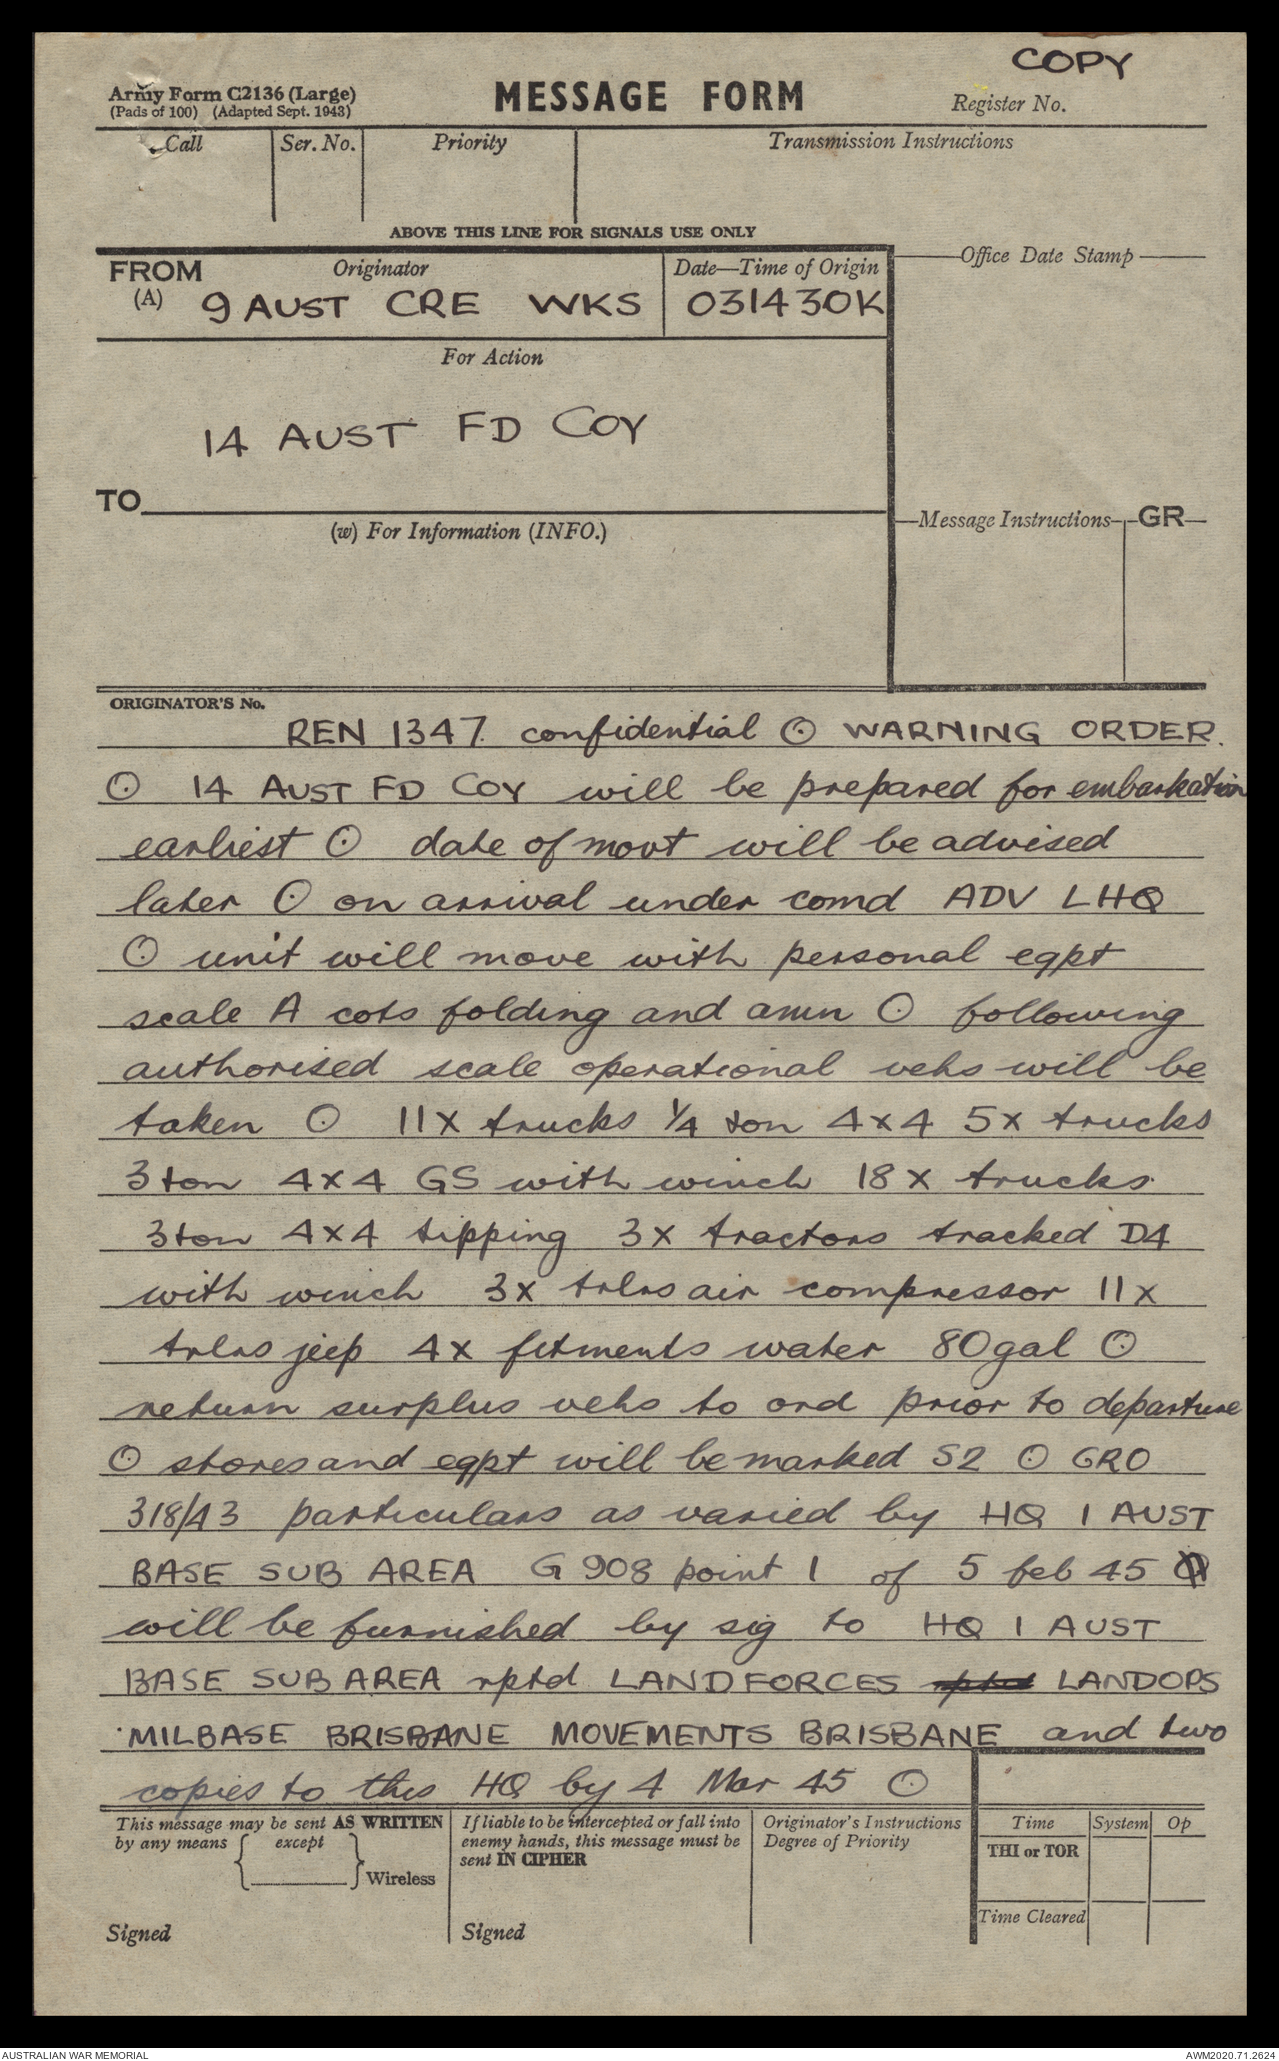 COPY
Army Form C2136 (Large)
(Pads of 100) (Adapted Sept. 1943)
MESSAGE FORM
Register No.
Call
Ser. No.
Priority
Transmission Instructions
ABOVE THIS LINE FOR SIGNALS USE ONLY
FROM
(A)
Originator
9 AUST CRE WKS
Date—Time of Origin
031430K
Office Date Stamp
For Action
14 AUST FD COY
TO
(w) For Information (INFO.)
Message Instructions
GR
ORIGINATOR'S No.
REN 1347. confidential ⊙ WARNING ORDER.
⊙ 14 AUST FD COY will be prepared for embarkation
earliest ⊙ date of movt will be advised
later ⊙ on arrival under comd ADV LHQ
⊙ unit will move with personal eqpt
scale A cots folding and amn ⊙ following
authorised scale operational vehs will be
taken ⊙ 11x trucks 1/4 ton 4x4 5x trucks
3 ton 4x4 GS with winch 18x trucks
3 ton 4x4 tipping 3x tractors tracked D4
with winch 3x trlrs air compressor 11x
trlrs jeep 4x fitments water 80 gal ⊙
return surplus vehs to ord prior to departure
⊙ stores and eqpt will be marked S2 ⊙ GRO
318/43 particulars as varied by HQ 1 AUST
BASE SUB AREA G 908 point 1 of 5 feb 45
will be furnished by sig to HQ 1 AUST
BASE SUB AREA rptd LANDFORCES rptd LANDOPS
MILBASE BRISBANE MOVEMENTS BRISBANE and two
copies to this HQ by 4 Mar 45 ⊙
This message may be sent AS WRITTEN
by any means { except
} Wireless
Signed
If liable to be intercepted or fall into
enemy hands, this message must be
sent IN CIPHER
Signed
Originator's Instructions
Degree of Priority
Time
System
Op
THI or TOR
Time Cleared
AUSTRALIAN WAR MEMORIAL
AWM2020.71.2624